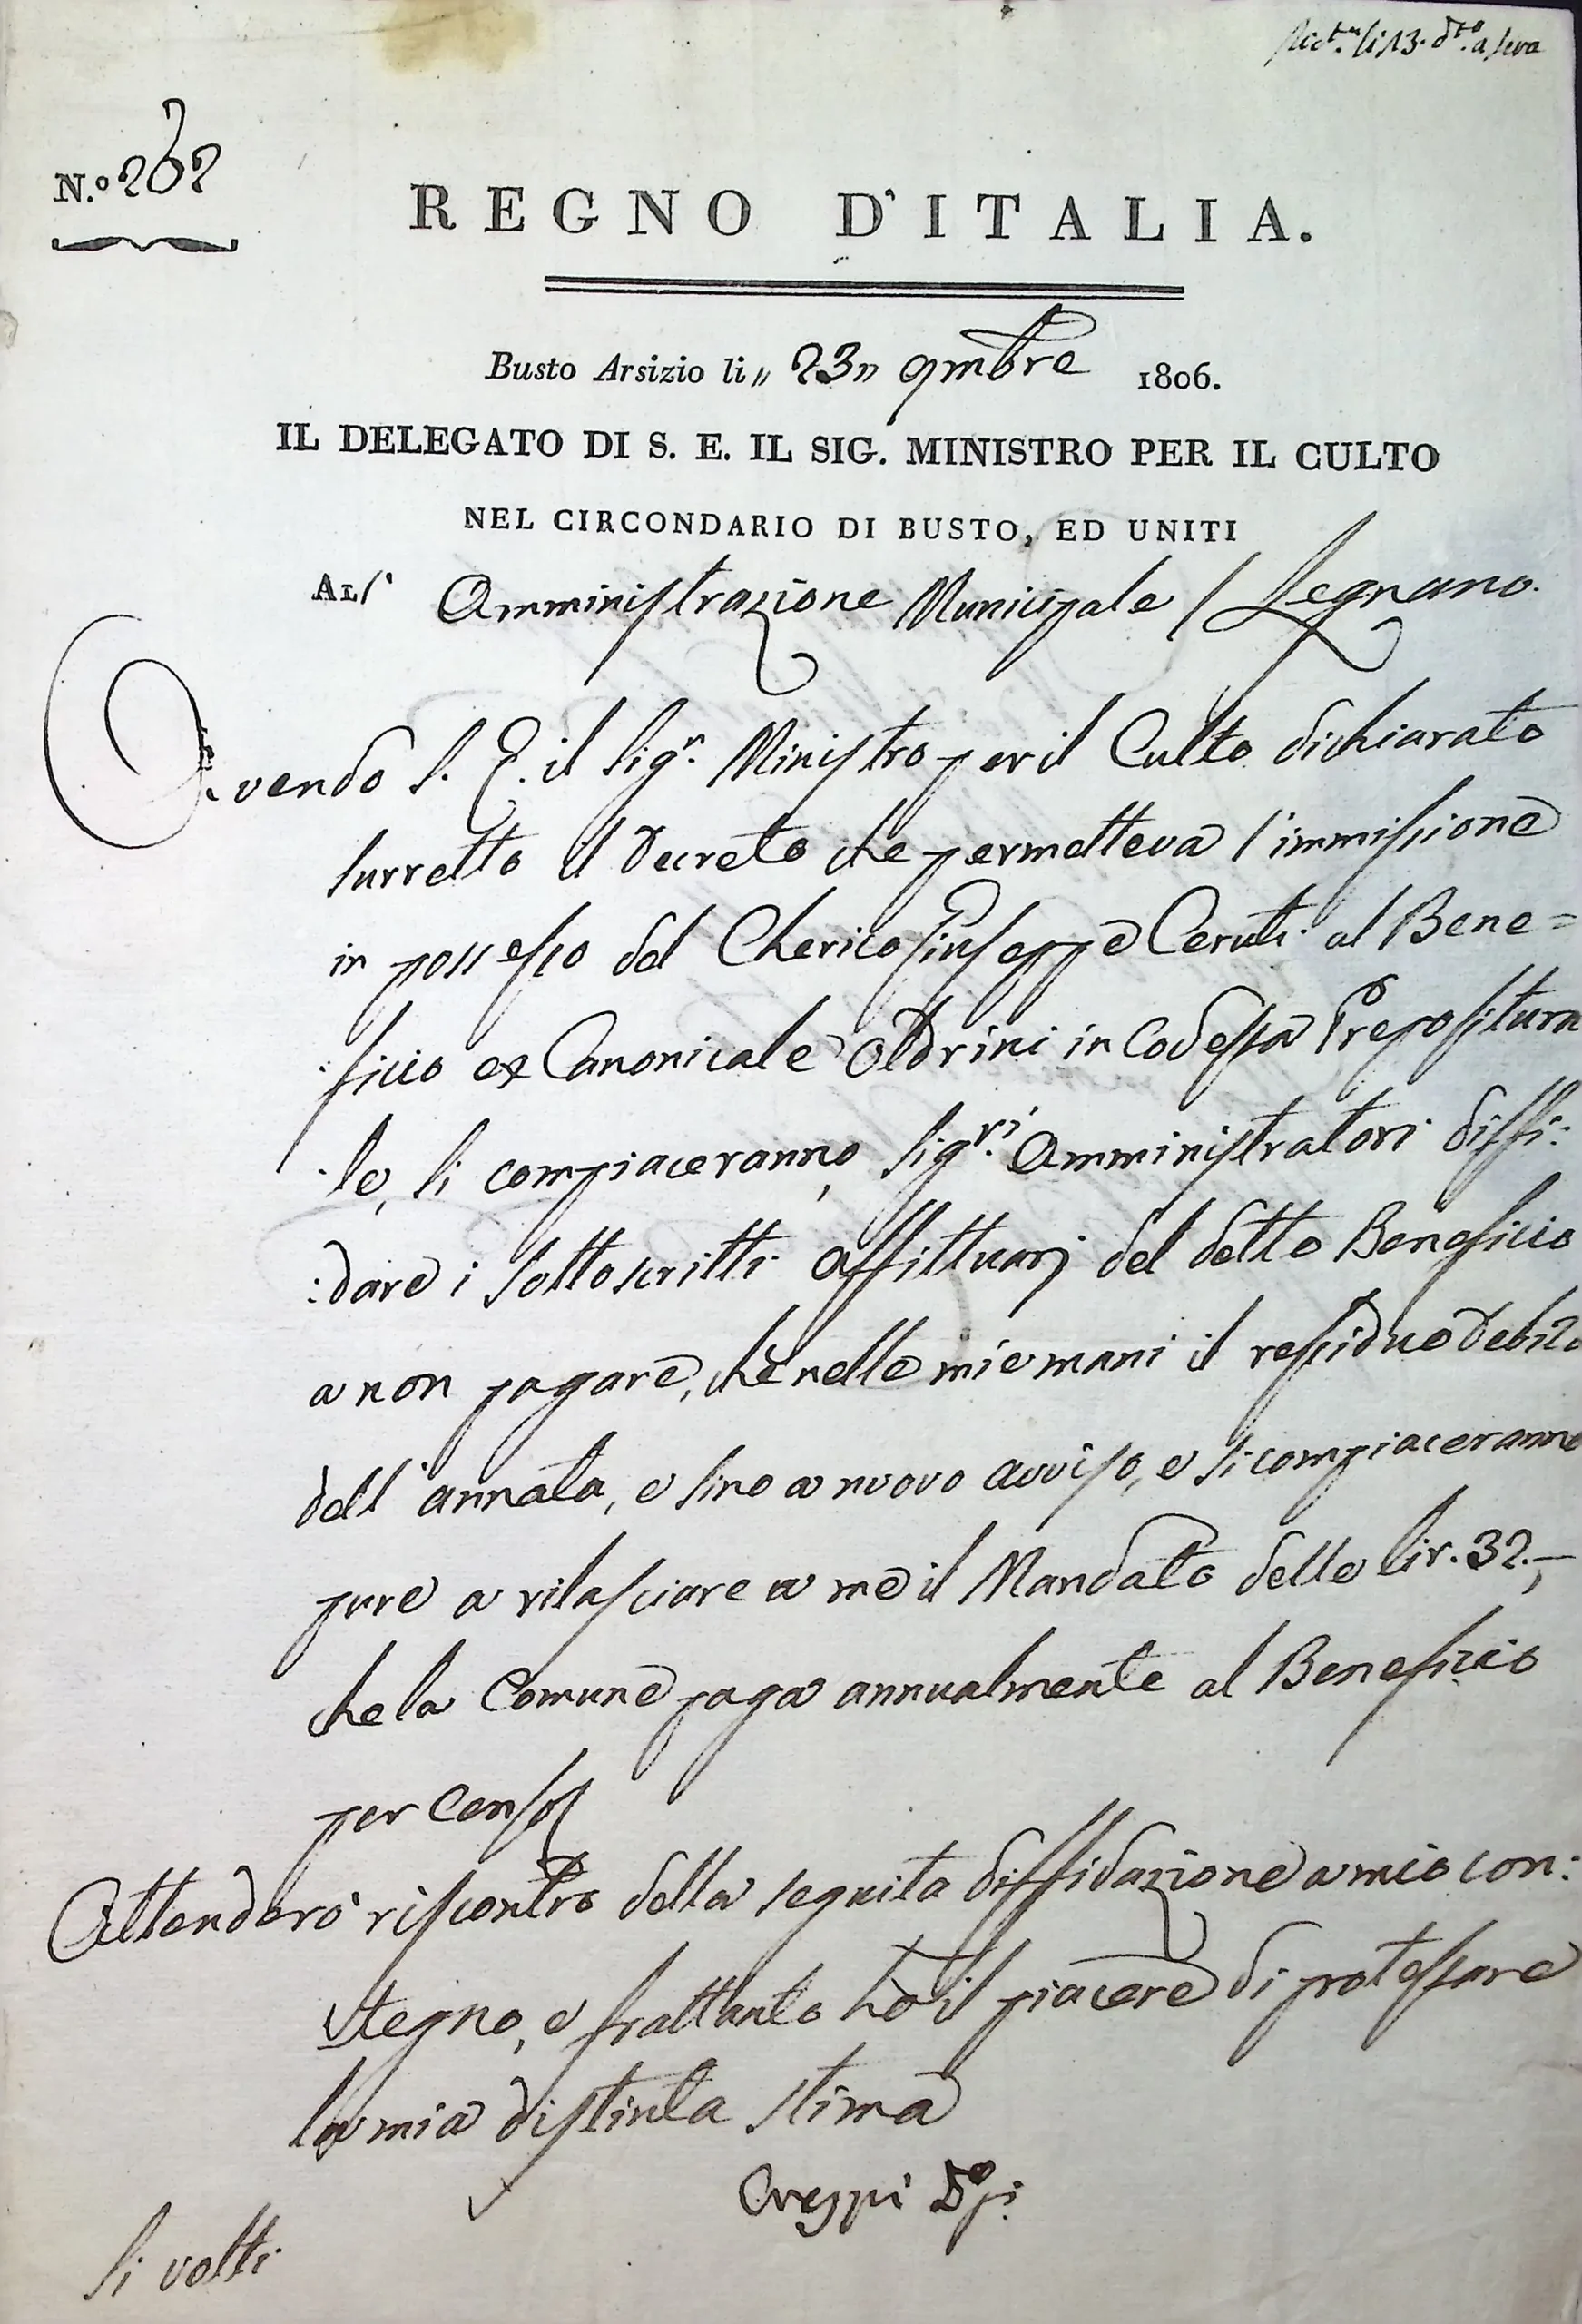 li 13. dto a sera
N.o 262
REGNO D'ITALIA.
Busto Arsizio li 23 9mbre 1806.
IL DELEGATO DI S. E. IL SIG. MINISTRO PER IL CULTO
NEL CIRCONDARIO DI BUSTO, ED UNITI
ALl' Amministrazione Municipale / Legnano.
Avendo S. E. il Sigr. Ministro per il Culto dichiarato
surretto il Decreto che permetteva l'immissione
in possesso del Cherico Giuseppe Ceruti al Bene=
:ficio ex Canonicale Oldrini in Codesta Prepositura
:le, si compiaceranno, Sigri. Amministratori diffi:
:dare i sottoscritti affittuarj del detto Beneficio
a non pagare, che nelle mie mani il residuo debito
dell'annata, e sino a nuovo avviso, e si compiaceranno
pure a rilasciare a me il Mandato delle Lir. 32.,-
che la Comune paga annualmente al Beneficio
per Censo
Attenderò riscontro della seguita diffidazione a mio con:
stegno, e frattanto hò il piacere di protestare
la mia distinta stima
Crespi
Si volti